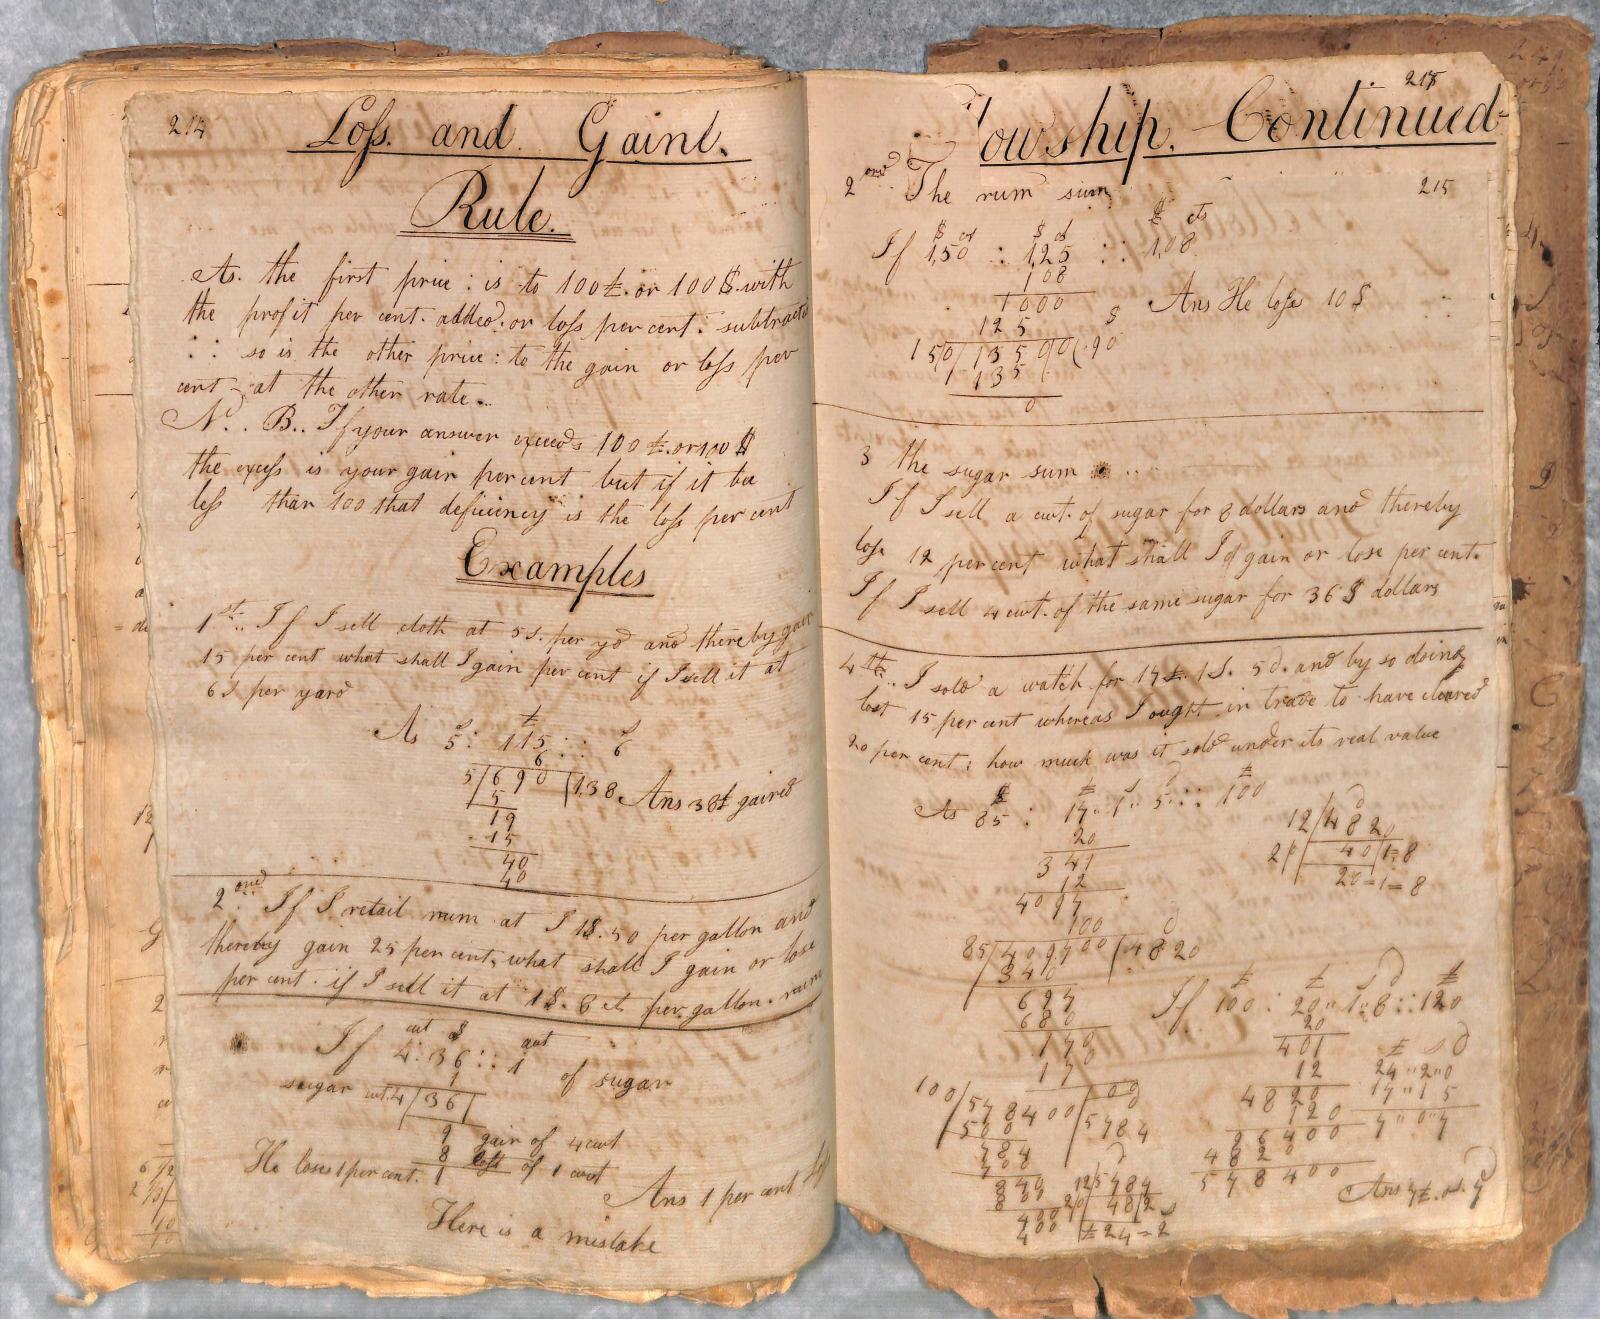 214
Loss. and. Gainl.
Rule.
As. the first price : is to 100£. or 100$. with
the profit per cent. added. or loss per cent. subtracted
: : so is the other price : to the gain or loss per
cent at the other rate.
N. B.. If your answer exceeds 100£. or 100$
the excess is your gain per cent but if it be
less than 100 that deficiency is the loss per cent
Examples
1st.. If I sell cloth at 5s. per yd and thereby gain
15 per cent what shall I gain per cent if I sell it at
6s per yard
s £ s
As 5 : 115 :: 6
6
5/690 (138 Ans 38£ gained
5
19
15
40
40
2ond If I retail rum at 1$.50 per gallon and
thereby gain 25 per cent, what shall I gain or lose
per cent. if I sell it at 1$. 8 ct per gallon. rum
cwt $ cwt
If 4 : 36 :: 1 of sugar
1
sugar cwt. 4/36/
9 gain of 4 cwt
8 lost of 1 cwt
He loses 1 per cent. 1
Ans 1 per cent loss
Here is a mistake
215
owship. Continued
2ond The rum sum 215
$ ct $ ct $ cts
If 1,50 : 1,25 :: 1,08
108
1000 Ans He loss 10$
125 $
150/13500(90
135
0
3 the sugar sum
If I sell a cwt. of sugar for 8 dollars and thereby
lose 12 per cent what shall I gain or lose per cent.
If I sell 4 cwt. of the same sugar for 36$ dollars
4th.. I sold a watch for 17£. 1s. 5d. and by so doing
lost 15 per cent whereas I ought in trade to have cleared
20 per cent ; how much was it sold under its real value
£ £ s d £
As 85 : 17.. 1.. 5 :: 100
20
341
12
4097
100 d
85/409700(4820
340
697
680
170
17
d
12/4820
20/401=8
20=1=8
£ £ s d £
If 100 : 20.. 1.. 8 :: 120
20
401
12
4820
120
96400
4820
578400
£ s d
24.. 2.. 0
17.. 1 5
7.. 0.. 7
100/578400
500 5784
784
700
840
800
400
400
12/5784
20/482 s
£24=2
Ans 7£. 0s. 7d